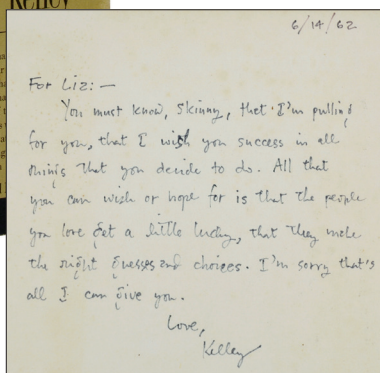 Kelley
6/14/62
For Liz: —
You must know, Skinny, that I'm pulling
for you, that I wish you success in all
things that you decide to do. All that
you can wish or hope for is that the people
you love get a little lucky, that they make
the right guesses and choices. I'm sorry that's
all I can give you.
Love,
Kelley